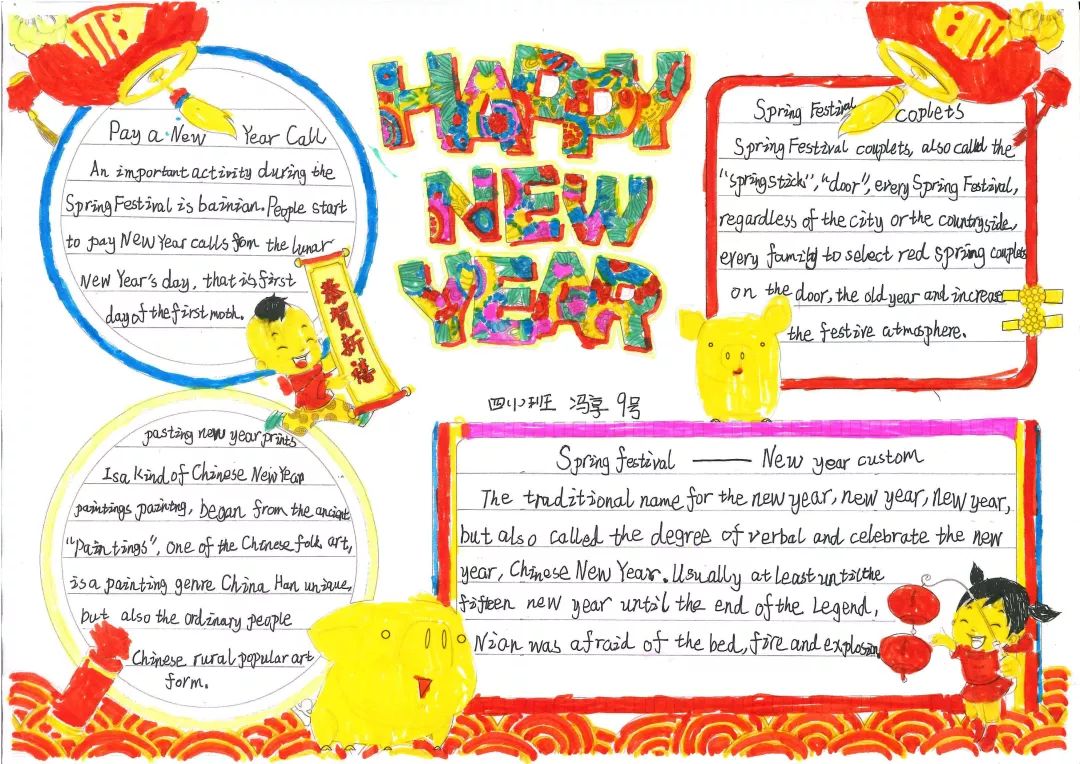 HAPPY
NEW
YEAR
Pay a New Year Call
An important activity during the
Spring Festival is bainian. People start
to pay New Year calls fom the lunar
New Year's day, that is first
day of the first moth.
恭贺新禧
Spring Festival coplets
Spring Festival couplets, also called the
"spring stick", "door", every Spring Festival,
regardless of the city or the countryside,
every family to select red spring couplets
on the door, the old year and increase
the festive atmosphere.
四小班 冯享 9号
pasting new year prints
Is a kind of Chinese New Year
paintings painting, began from the ancient
"Paintings", one of the Chinese folk art,
is a painting genre China Han unique,
but also the ordinary people
Chinese rural popular art
form.
Spring festival —— New year custom
The traditional name for the new year, new year, new year,
but also called the degree of verbal and celebrate the new
year, Chinese New Year. Usually at least until the
fifteen new year until the end of the Legend,
Nian was afraid of the bed, fire and explosion